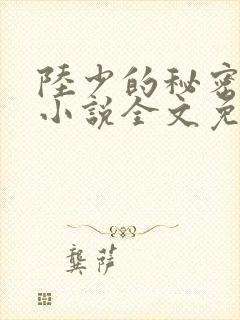 陸少的秘密
小說全文免
龔萍